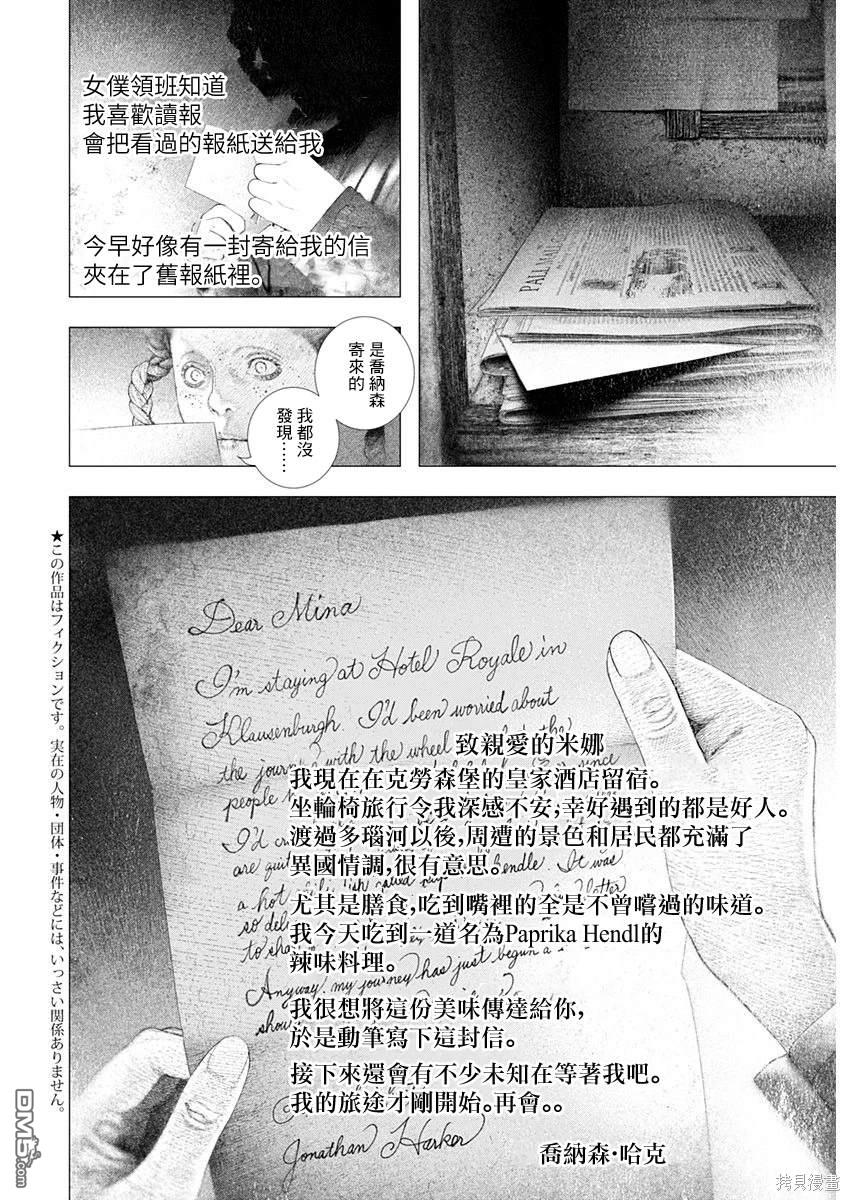 女僕領班知道
我喜歡讀報
會把看過的報紙送給我
今早好像有一封寄給我的信
夾在了舊報紙裡。
PALL MALL G
是喬納森
寄來的
我都沒
發現……
Dear Mina
I'm staying at Hotel Royale in
Klausenburgh. I'd been worried about
the journey with the wheel
people
since
I'd cr
are quit
a hot
called
hendle. It was
so del
letter
to sha
Anyway, my journey has just begun
show
Jonathan Harker
致親愛的米娜
我現在在克勞森堡的皇家酒店留宿。
坐輪椅旅行令我深感不安,幸好遇到的都是好人。
渡過多瑙河以後,周遭的景色和居民都充滿了
異國情調,很有意思。
尤其是膳食,吃到嘴裡的全是不曾嚐過的味道。
我今天吃到一道名為Paprika Hendl的
辣味料理。
我很想將這份美味傳達給你,
於是動筆寫下這封信。
接下來還會有不少未知在等著我吧。
我的旅途才剛開始。再會。。
喬納森·哈克
★この作品はフィクションです。実在の人物・団体・事件などには、いっさい関係ありません。
DM5.com
拷貝漫畫